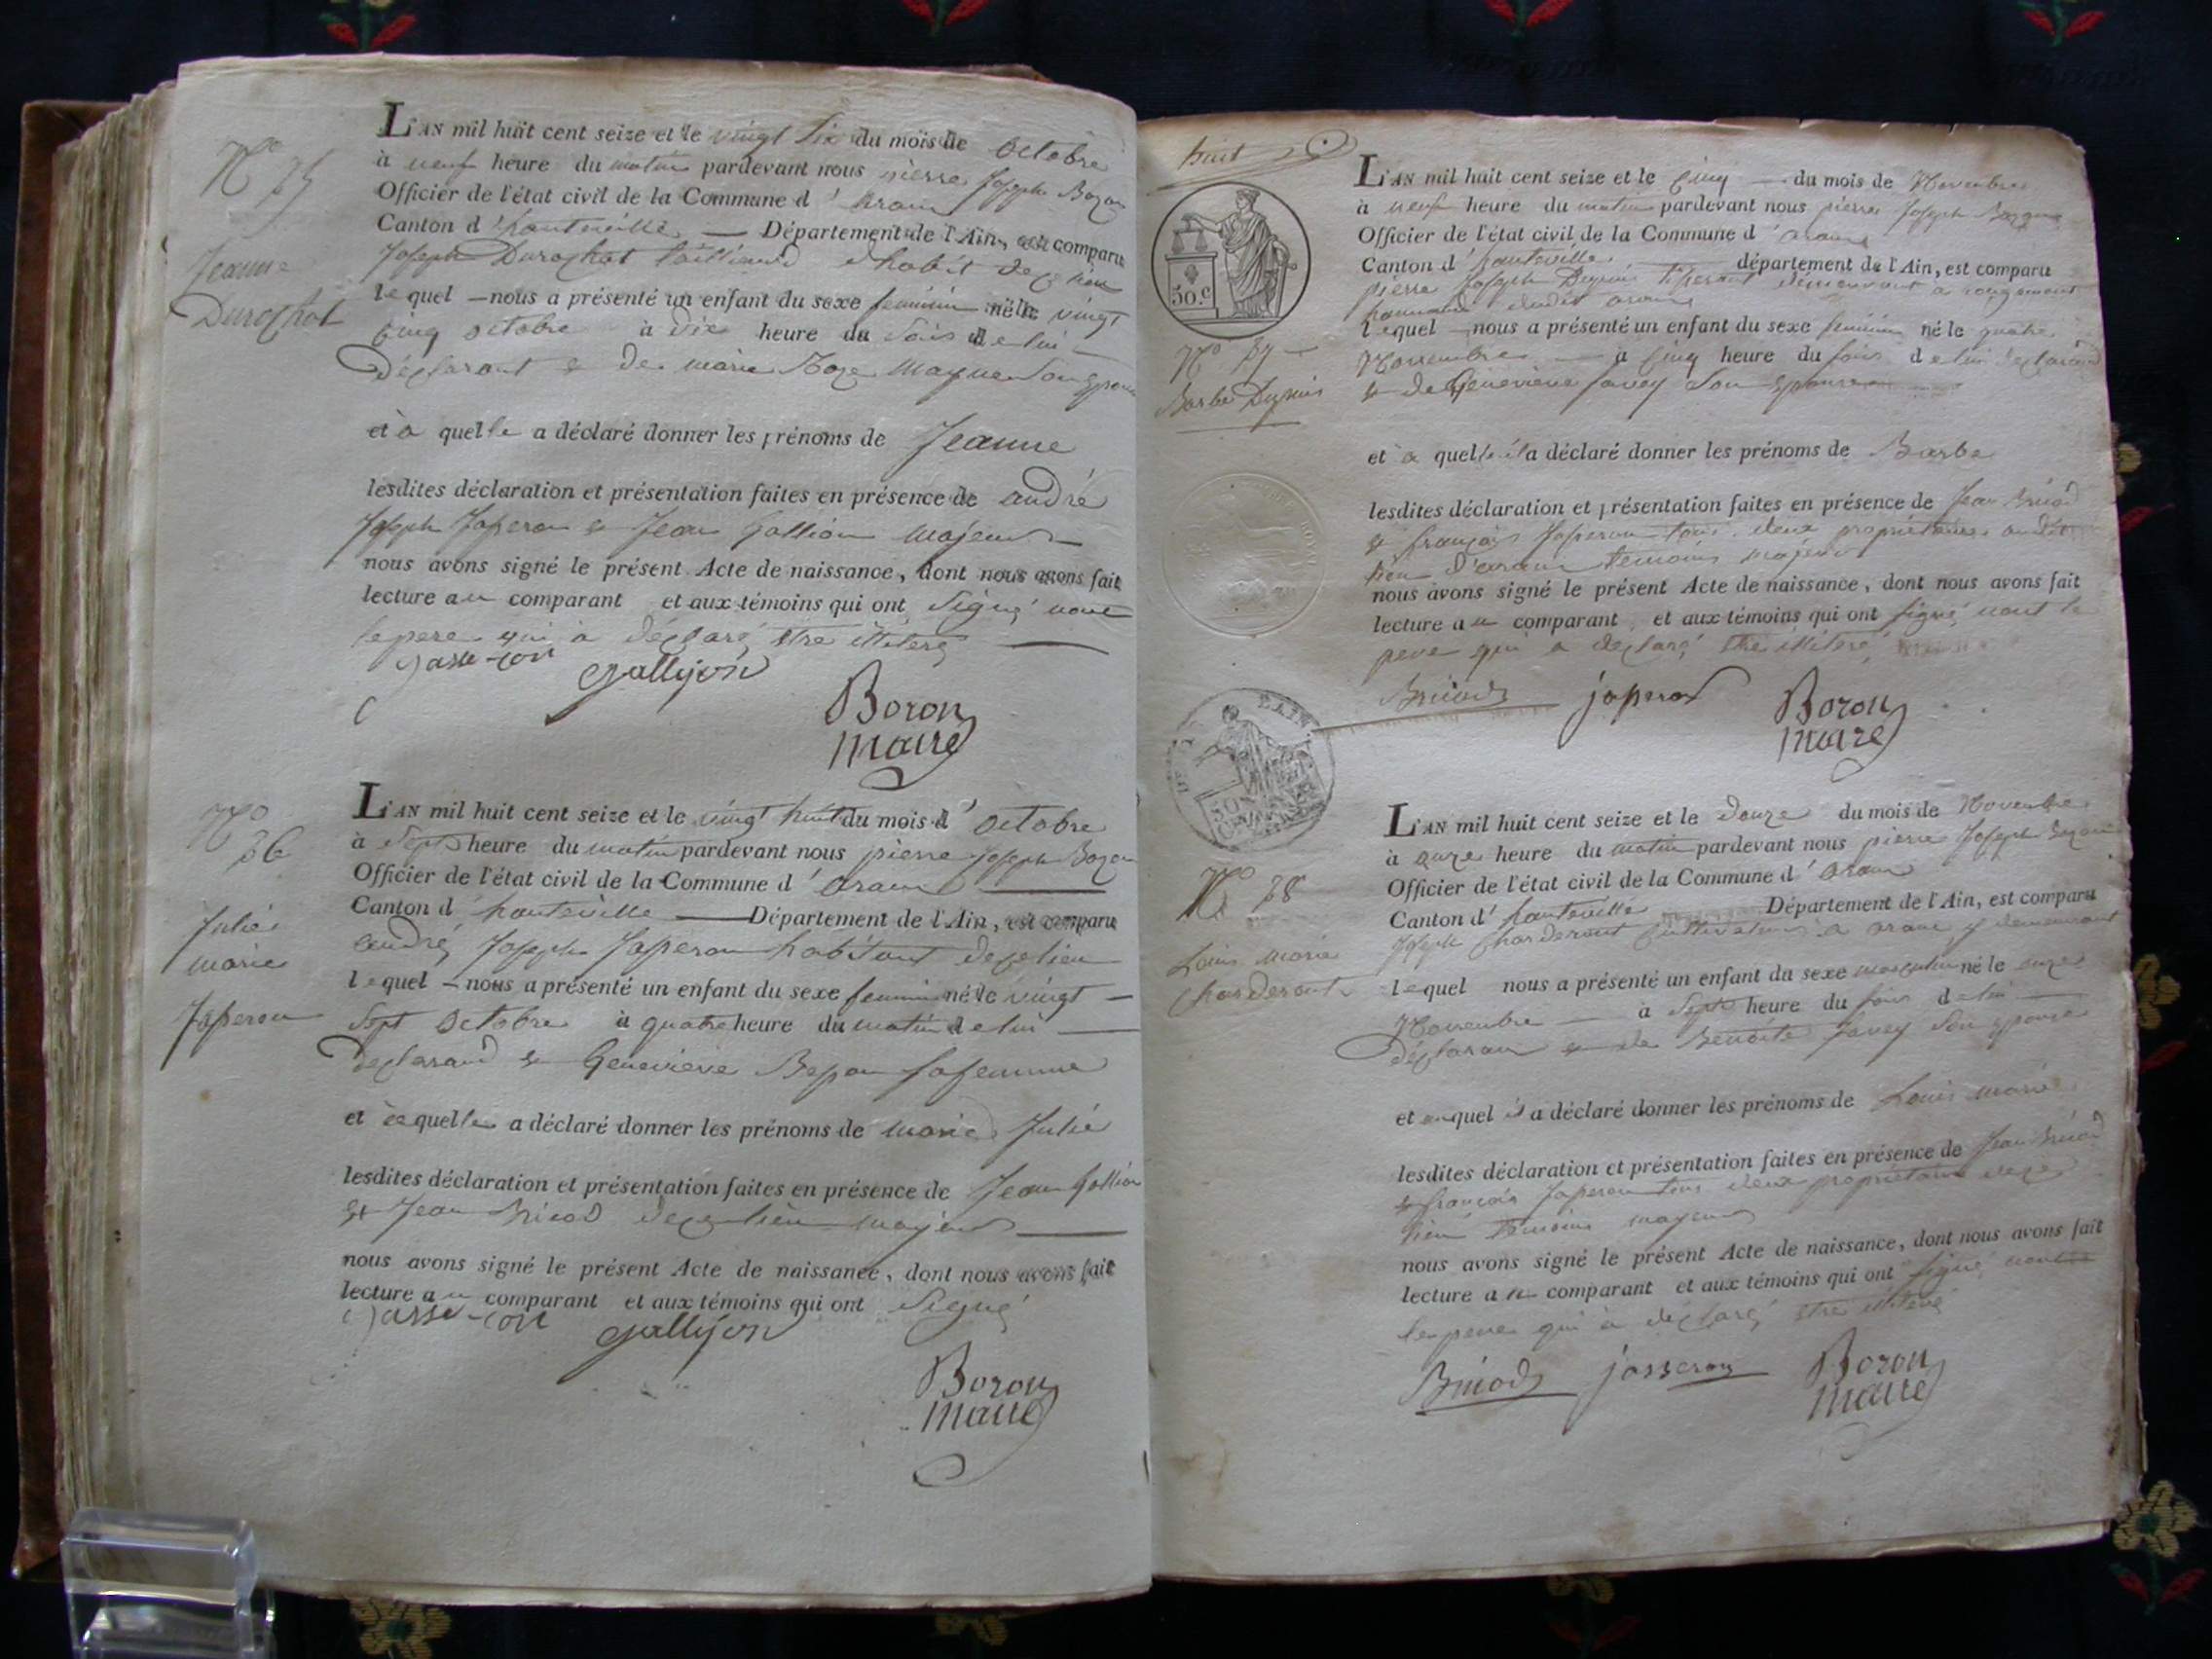 N° 35
Jeanne
Durochat
L'AN mil huit cent seize et le vingt six du mois de octobre
à neuf heure du matin pardevant nous pierre Joseph Bozon
Officier de l'état civil de la Commune d' aranc
Canton d' hauteville — Département de l'Ain, est comparu
Joseph Durochat
lequel — nous a présenté un enfant du sexe feminin né le vingt
cinq octobre à dix heure du soir de lui —
déclarant & de marie
et à quelle a déclaré donner les prénoms de Jeanne
lesdites déclaration et présentation faites en présence de andré
Joseph Japeron & Jean Gallion majeurs —
nous avons signé le présent Acte de naissance, dont nous avons fait
lecture au comparant et aux témoins qui ont signé non
le pere qui a déclaré être illitere —
Jasse-ron gallyon
Boron
maire
N° 36
Julie
marie
Japeron
L'AN mil huit cent seize et le vingt huit du mois d' octobre
à sept heure du matin pardevant nous pierre Joseph Bozon
Officier de l'état civil de la Commune d' aranc —
Canton d' hauteville — Département de l'Ain, est comparu
andré Joseph Japeron habitant de ce lieu
lequel — nous a présenté un enfant du sexe feminin né le vingt —
sept octobre à quatre heure du matin de lui —
declarand & Genevieve sa femme
et à quelle a déclaré donner les prénoms de marie Julie
lesdites déclaration et présentation faites en présence de Jean Gallion
& Jean Bricod de ce lieu majeurs —
nous avons signé le présent Acte de naissance, dont nous avons fait
lecture au comparant et aux témoins qui ont signé
Jasse-ron gallyon
Boron
maire
huit
50 c
N° 37
Barbe Dupuis
L'AN mil huit cent seize et le cinq — du mois de Novembre
à neuf heure du matin pardevant nous pierre Joseph Bozon
Officier de l'état civil de la Commune d' aranc
Canton d' hauteville — département de l'Ain, est comparu
pierre Joseph Dupuis demeurant a
dudit aranc
lequel — nous a présenté un enfant du sexe feminin né le quatre
Novembre — à cinq heure du soir de lui declarand
& de Genevieve Savey son epouse
et à quelle il a déclaré donner les prénoms de Barbe
lesdites déclaration et présentation faites en présence de Jean Bricod
& françois Japeron tous deux proprietaires audit
lieu d'aranc temoins majeurs
nous avons signé le présent Acte de naissance, dont nous avons fait
lecture au comparant et aux témoins qui ont signé non le
pere qui a declaré être illitere
Bricod japeron Boron
maire
N° 38
Louis marie
Charderont
L'AN mil huit cent seize et le douze du mois de Novembre
à onze heure du matin pardevant nous pierre Joseph Bozon
Officier de l'état civil de la Commune d' aranc
Canton d' hauteville Département de l'Ain, est comparu
Joseph Charderont cultivateur a aranc y demeurant
lequel nous a présenté un enfant du sexe masculin né le onze
Novembre — à sept heure du soir de lui —
déclarant & de Benoite Savey son epouse
et auquel il a déclaré donner les prénoms de Louis marie
lesdites déclaration et présentation faites en présence de Jean Bricod
& françois Japeron tous deux propriétaire de ce
lieu temoins majeurs
nous avons signé le présent Acte de naissance, dont nous avons fait
lecture au comparant et aux témoins qui ont signé non
le pere qui a déclaré être illitere
Bricod josseron Boron
maire